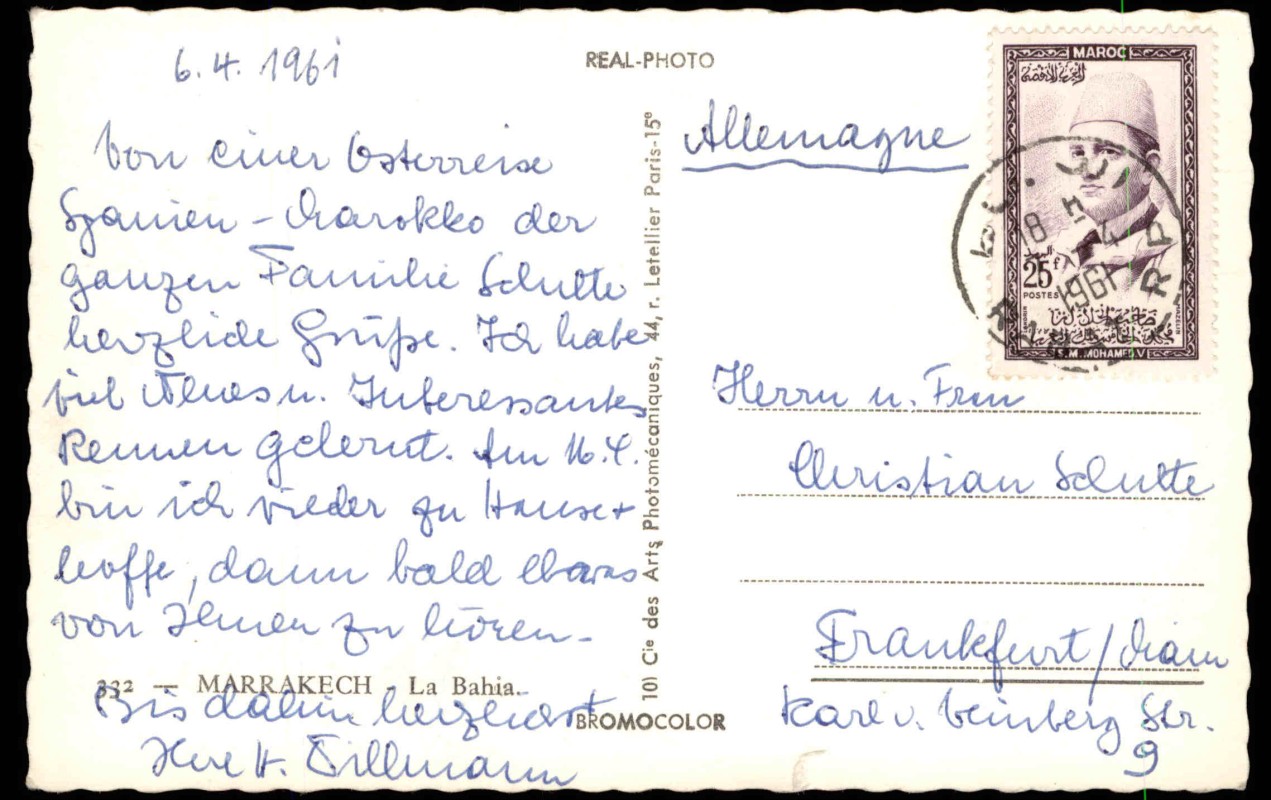 6.4.1961
Von einer Osterreise
Spanien - Marokko der
ganzen Familie Schulte
herzliche Grüße. Ich habe
viel Neues u. Interessantes
kennen gelernt. Am 16.4.
bin ich wieder zu Hause +
hoffe, dann bald etwas
von Ihnen zu hören -
332 — MARRAKECH - La Bahia.
Bis dahin herzlichst
Ihre H. Tillmann
REAL-PHOTO
10) Cie des Arts Photomécaniques, 44, r. Letellier Paris-15e
BROMOCOLOR
Allemagne
MAROC
المغربية
25f
POSTES
S.M. MOHAMED V
18 H
1961
R P
Herrn u. Frau
Christian Schulte
Frankfurt/Main
Karl v. Weinberg Str.
9